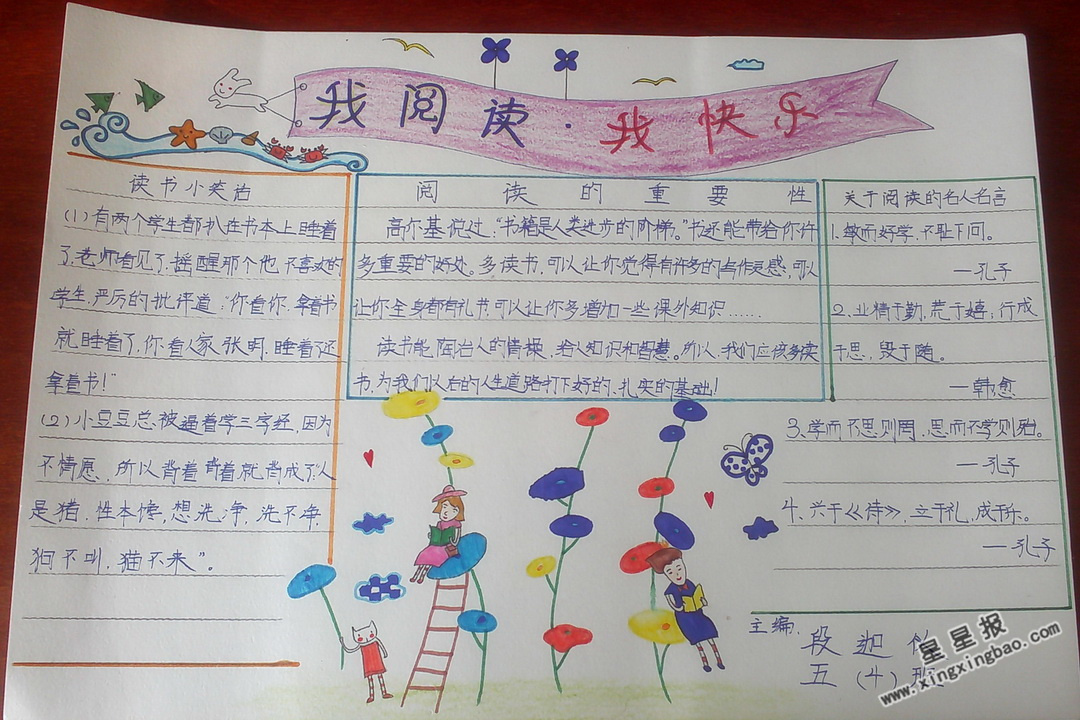 我阅读·我快乐
读书小笑话
(1)有两个学生都趴在书本上睡着
了,老师看见了,摇醒那个他不喜欢的
学生,严厉的批评道:“你看你,拿着书
就睡着了,你看人家张明,睡着了还
拿着书!”
(2)小豆豆总被逼着学三字经,因为
不情愿,所以背着背着就背成了:“人
是猪,性本馋,想洗净,洗不净,
狗不叫,猫不来”。
阅读的重要性
高尔基说过:“书籍是人类进步的阶梯。”书还能带给你许
多重要的好处。多读书,可以让你觉得有许多的写作灵感,可以
让你全身都有礼节,可以让你多增加一些课外知识……
读书能陶冶人的情操,给人知识和智慧。所以,我们应该多读
书,为我们以后的人生道路打下好的、扎实的基础!
关于阅读的名人名言
1.敏而好学,不耻下问。
—孔子
2.业精于勤,荒于嬉;行成
于思,毁于随。
—韩愈
3.学而不思则罔,思而不学则殆。
—孔子
4.兴于《诗》,立于礼,成于乐。
—孔子
主编:
段迦
五(4)班
星星报
www.xingxingbao.com